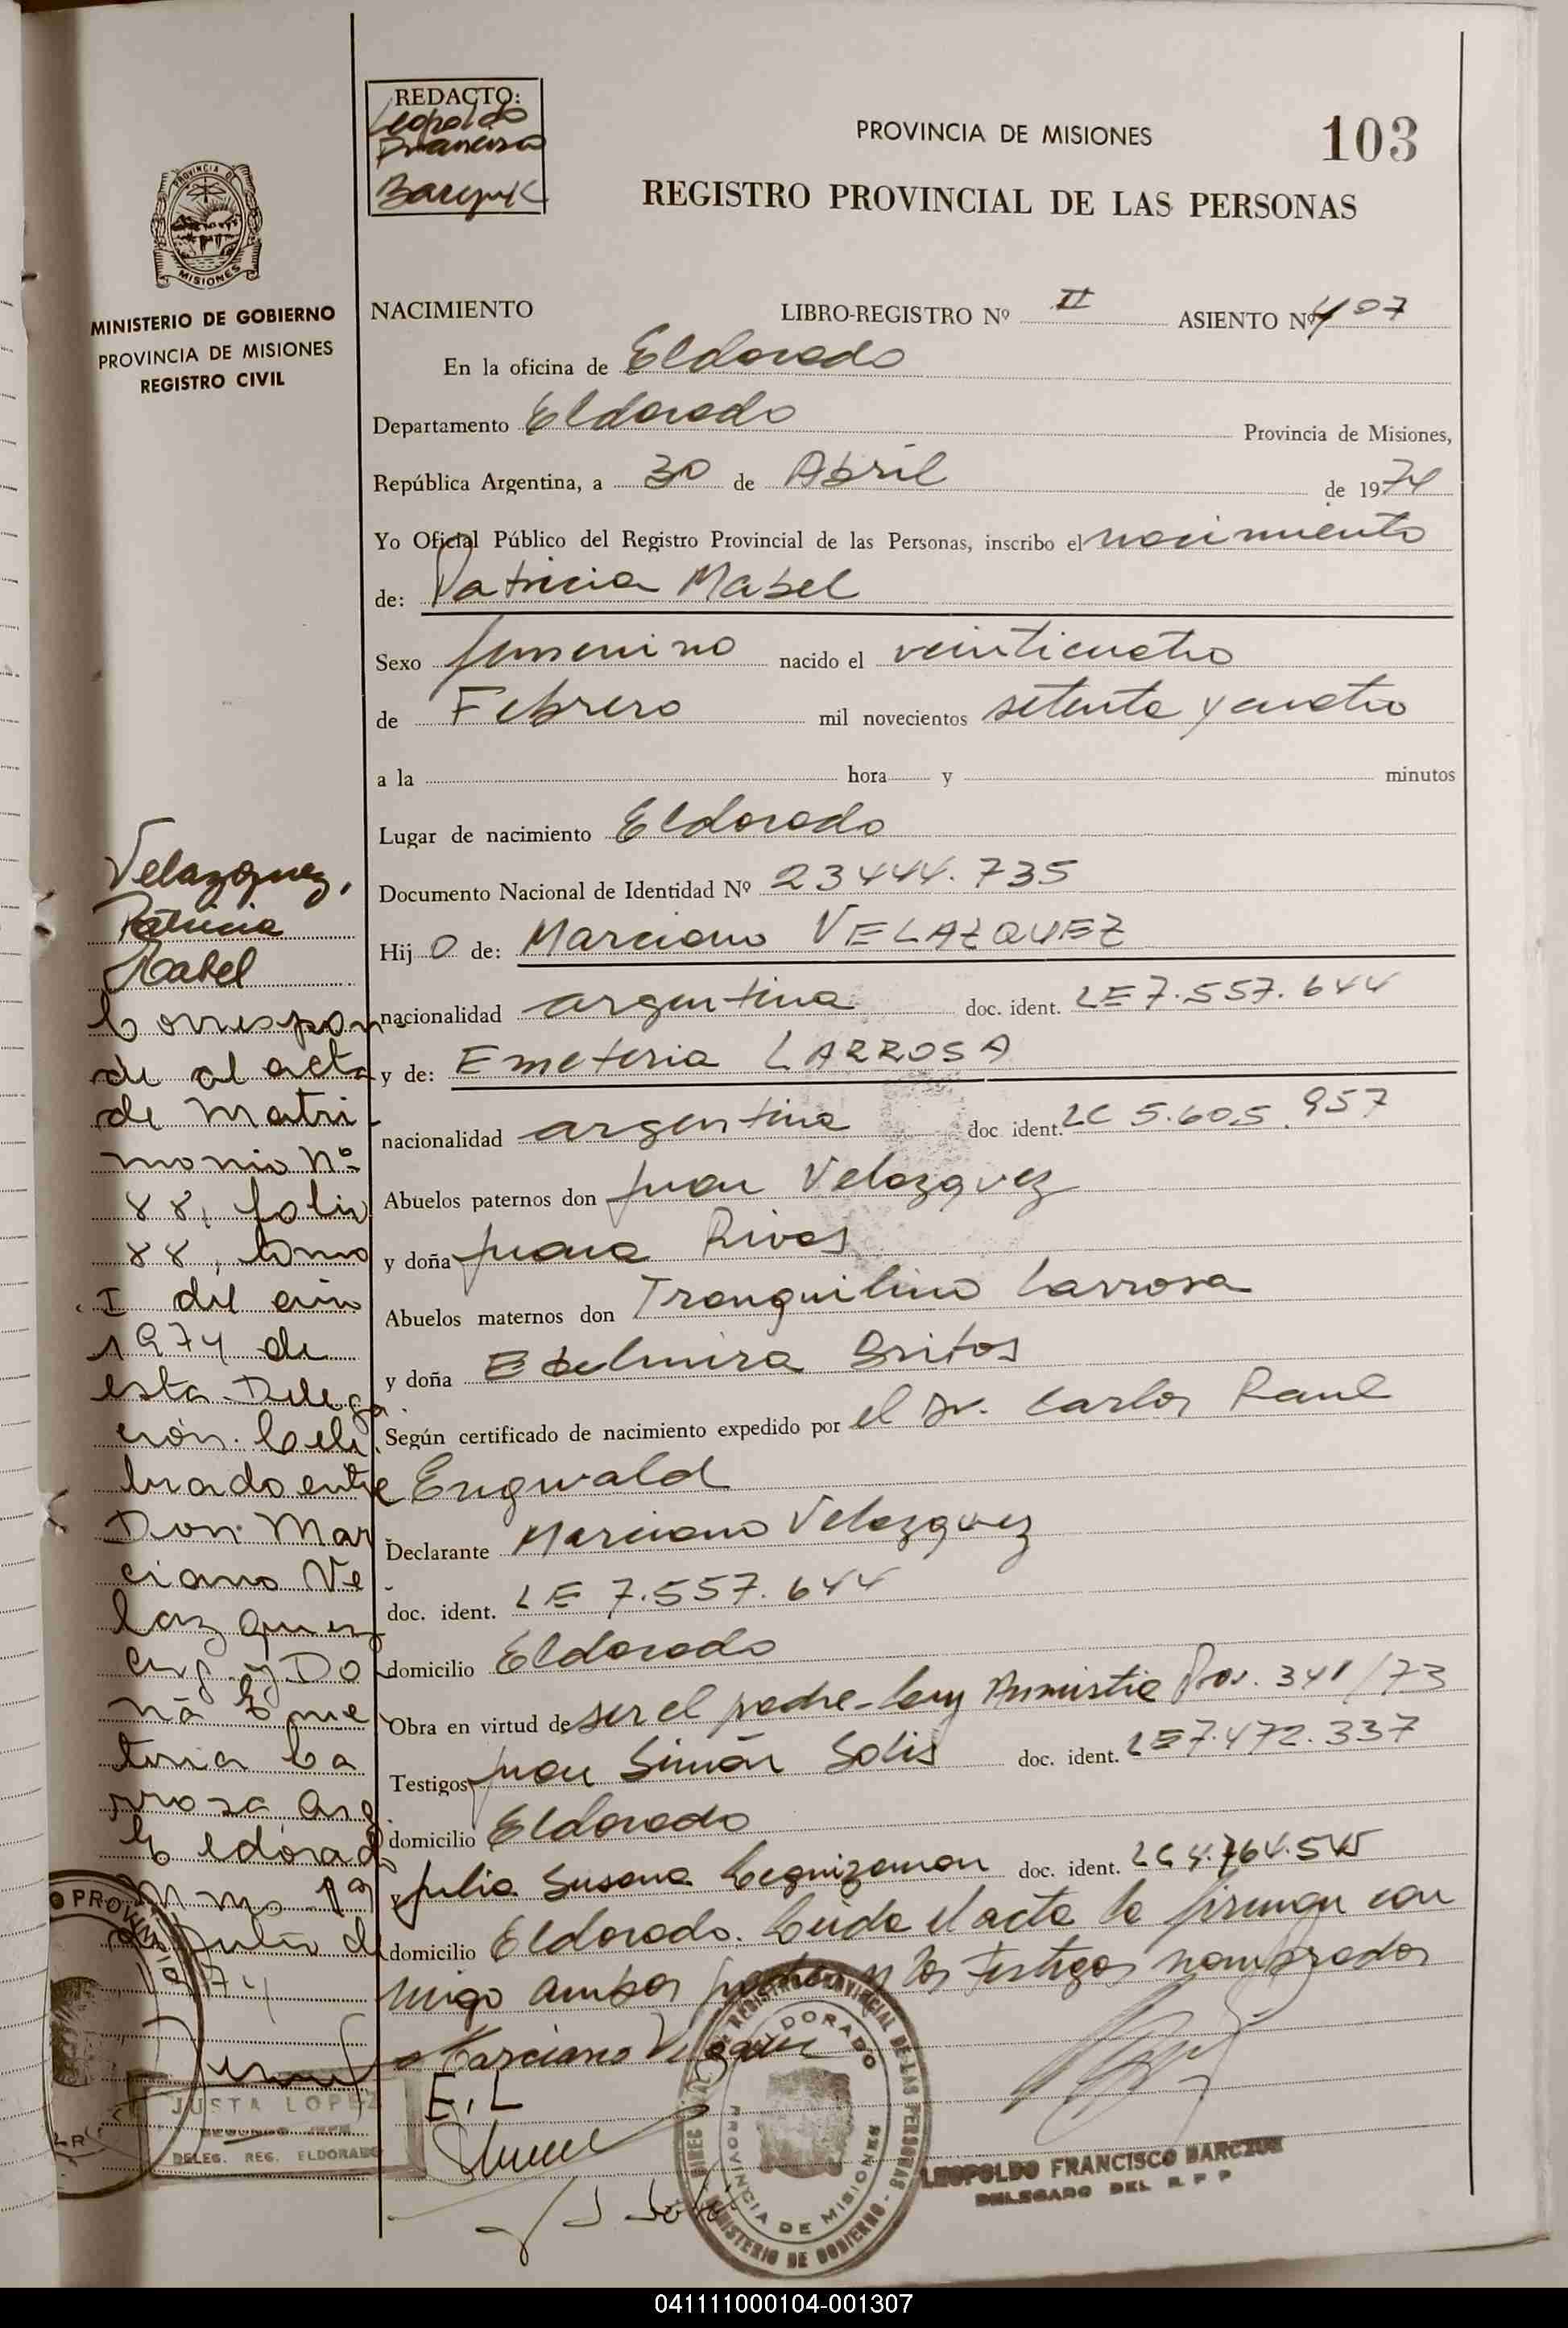 REDACTO:
Leopoldo
Francisco
Barczuk
PROVINCIA DE MISIONES
103
REGISTRO PROVINCIAL DE LAS PERSONAS
PROVINCIA DE
MISIONES
MINISTERIO DE GOBIERNO
PROVINCIA DE MISIONES
REGISTRO CIVIL
NACIMIENTO LIBRO-REGISTRO Nº II ASIENTO Nº 407
En la oficina de Eldorado
Departamento Eldorado Provincia de Misiones,
República Argentina, a 30 de Abril de 1974
Yo Oficial Público del Registro Provincial de las Personas, inscribo el nacimiento
de: Patricia Mabel
Sexo femenino nacido el veinticuatro
de Febrero mil novecientos setenta y cuatro
a la hora y minutos
Lugar de nacimiento Eldorado
Documento Nacional de Identidad Nº 23444.735
Hij o de: Marciano VELAZQUEZ
nacionalidad argentina doc. ident. LE 7.557.644
y de: Emeteria LARROSA
nacionalidad argentina doc ident. LC 5.605.957
Abuelos paternos don Juan Velazquez
y doña Juana Rivas
Abuelos maternos don Tranquilino Larrosa
y doña Edelmira Britos
Según certificado de nacimiento expedido por el Dr. Carlos Raul
Engwald
Declarante Marciano Velazquez
doc. ident. LE 7.557.644
domicilio Eldorado
Obra en virtud de ser el padre - Ley Amnistia Prov. 341/73
Testigos Juan Simón Solis doc. ident. LE 7.472.337
domicilio Eldorado
y Julia Susana Leguizamon doc. ident. LC 4.764.545
domicilio Eldorado. Leida el acta la firman con
migo ambos padres y los testigos nombrados
Marciano Velazquez
E.L
Velazquez,
Patricia
Mabel
Correspon
de al acta
de Matri
monio Nº
88, folio
88, tomo
I del año
1974 de
esta Delega
ción. Cele
brado entre
Don Mar
ciano Ve
lazquez
arg. y Do
ña Eme
teria La
rrosa Arg
Eldorado
Julio de
74
JUSTA LOPEZ
SEGUNDO JEFE
DELEG. REG. ELDORADO
REGISTRO PROVINCIAL DE LAS PERSONAS - MINISTERIO DE GOBIERNO
ELDORADO
PROVINCIA DE MISIONES
LEOPOLDO FRANCISCO BARCZUK
DELEGADO DEL R P P
041111000104-001307